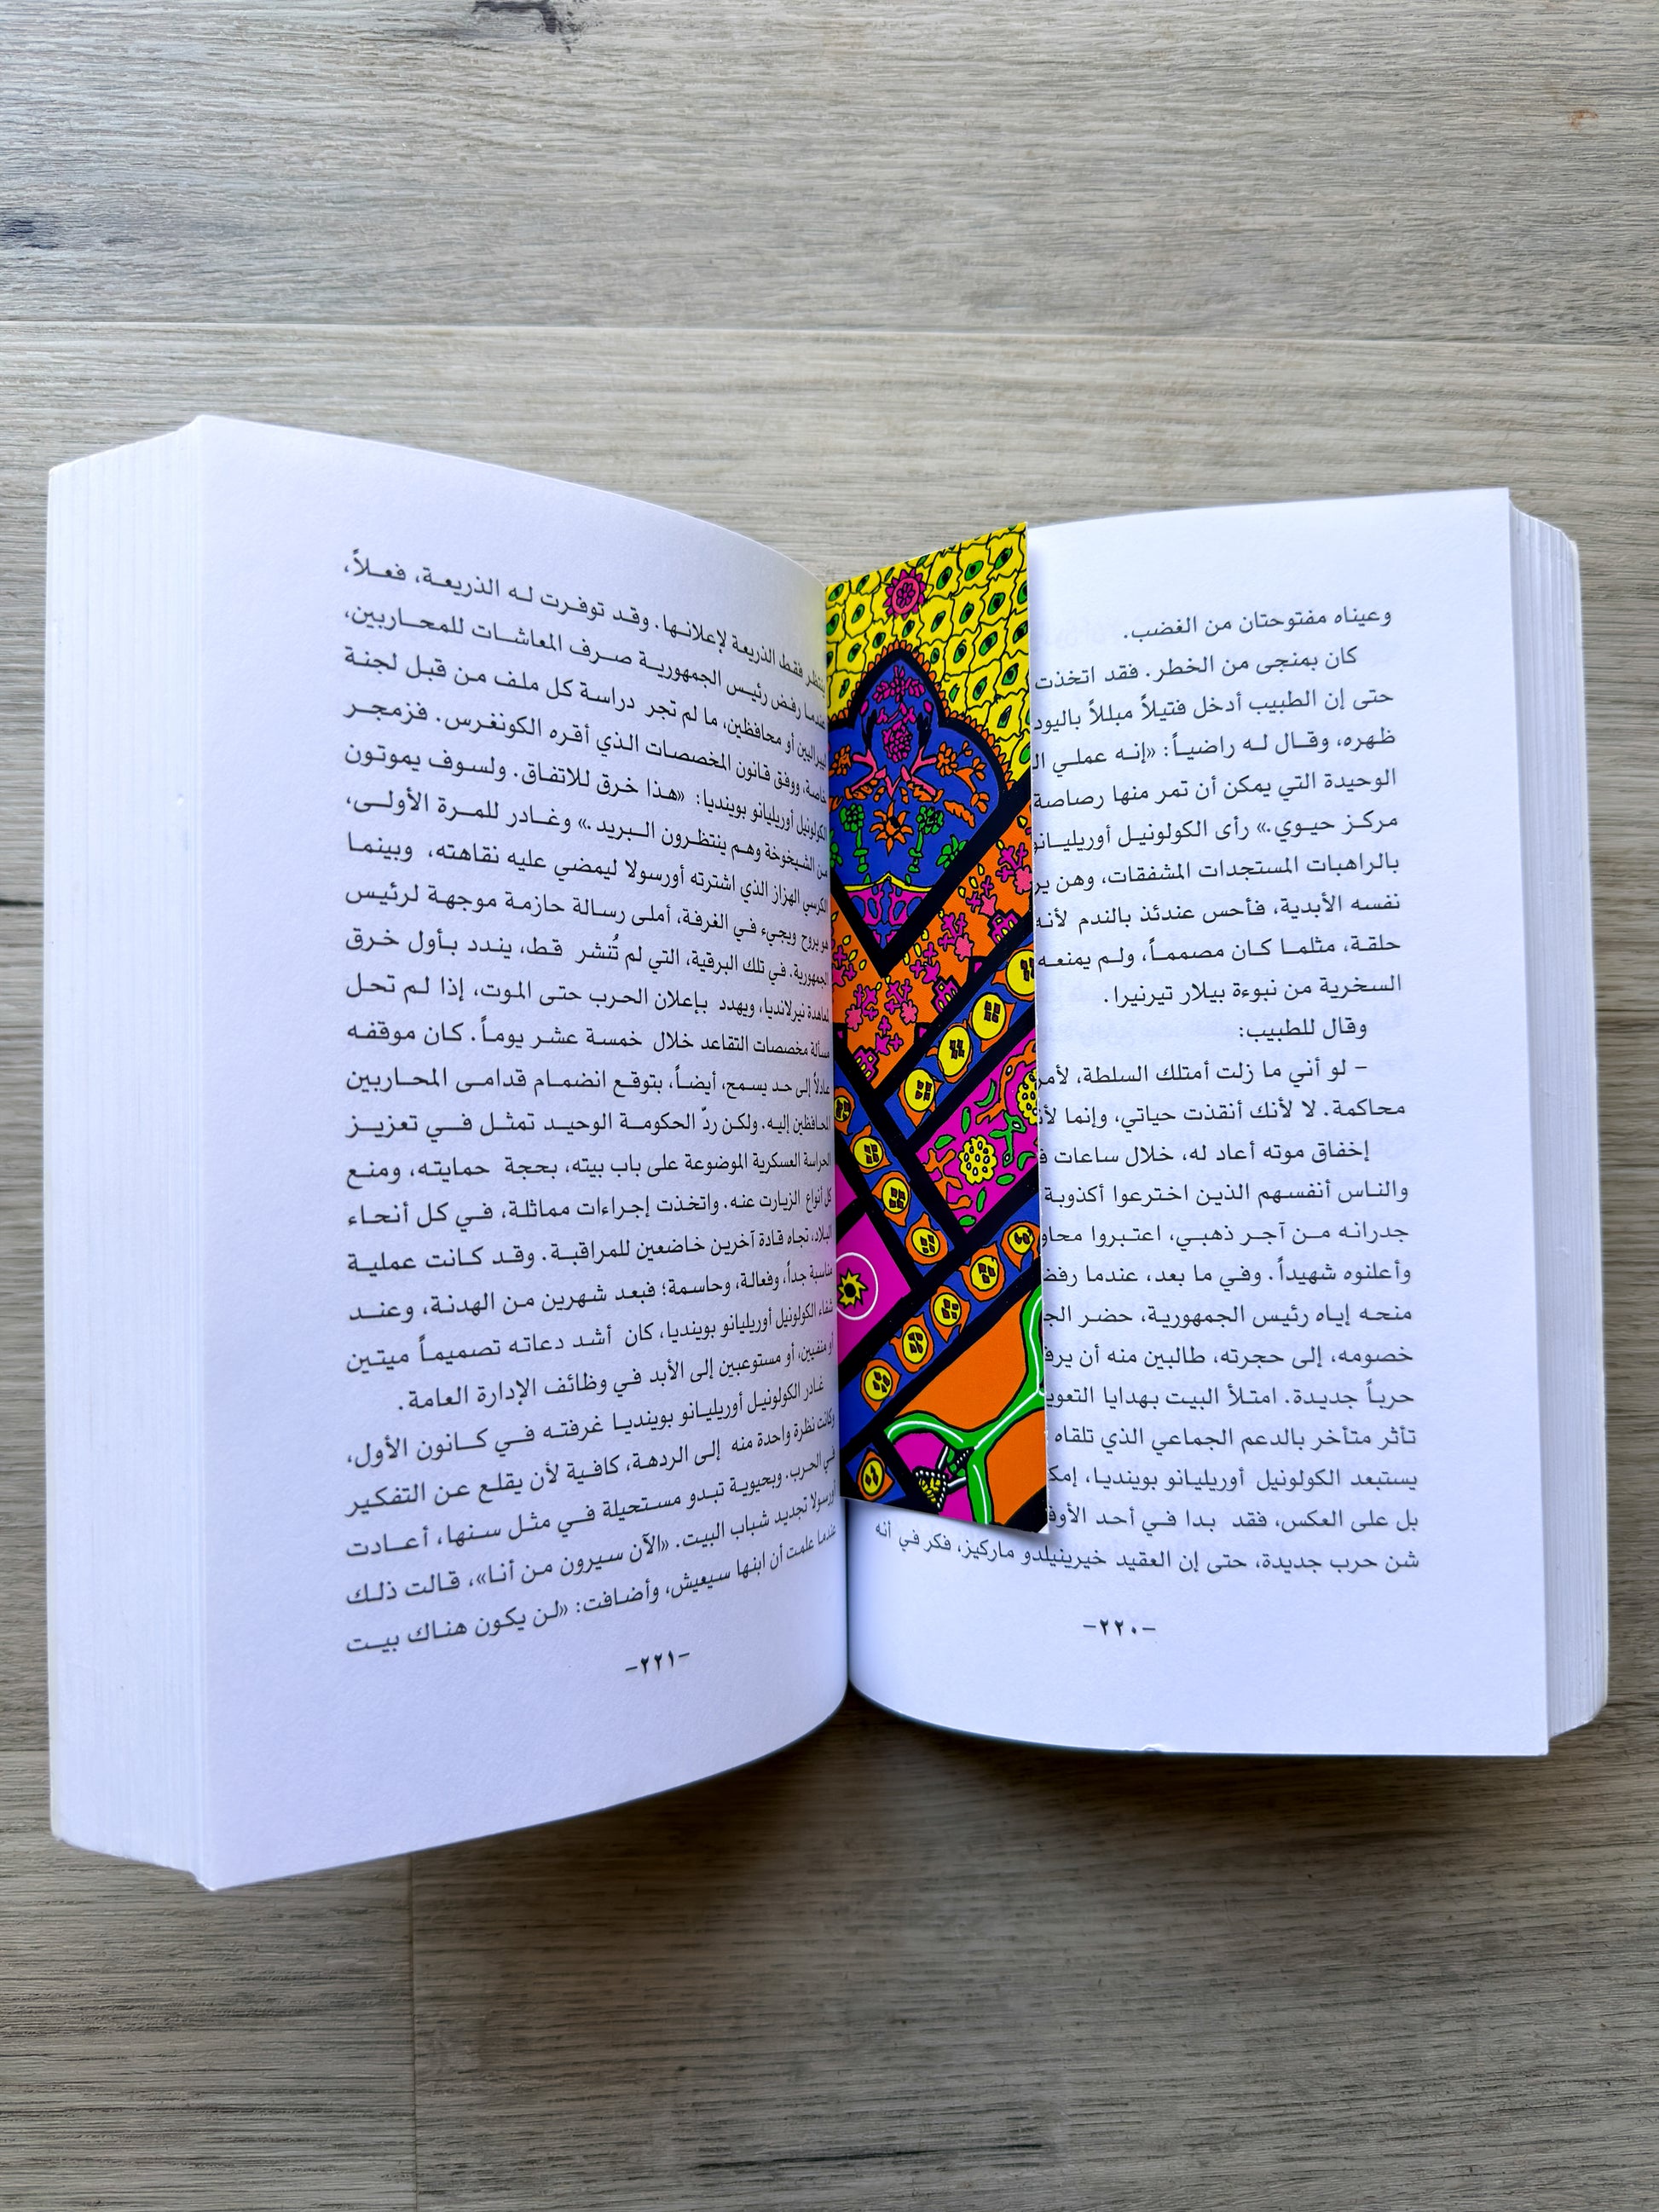 وعيناه مفتوحتان من الغضب.
كان بمنجى من الخطر. فقد اتخذت
حتى إن الطبيب أدخل فتيلاً مبللاً باليود
ظهره، وقال له راضياً: «إنه عملي
الوحيدة التي يمكن أن تمر منها رصاصة
مركز حيوي.» رأى الكولونيل أوريليانو
بالراهبات المستجدات المشفقات، وهن
نفسه الأبدية، فأحس عندئذ بالندم لأنه
حلقة، مثلما كان مصمماً، ولم يمنعه
السخرية من نبوءة بيلار تيرنيرا.
وقال للطبيب:
– لو أني ما زلت أمتلك السلطة،
محاكمة. لا لأنك أنقذت حياتي، وإنما
إخفاق موته أعاد له، خلال ساعات
والناس أنفسهم الذين اخترعوا أكذوبة
جدرانه من آجر ذهبي، اعتبروا
وأعلنوه شهيداً. وفي ما بعد، عندما رفض
منحه إياه رئيس الجمهورية، حضر
خصومه، إلى حجرته، طالبين منه أن
حرباً جديدة. امتلأ البيت بهدايا
تأثر متأخر بالدعم الجماعي الذي تلقاه
يستبعد الكولونيل أوريليانو بوينديا،
بل على العكس، فقد بدا في أحد
شن حرب جديدة، حتى إن العقيد خيرينيلدو ماركيز، فكر في أنه
–٢٢٠–
ينتظر فقط الذريعة لإعلانها. وقد توفرت له الذريعة، فعلاً،
عندما رفض رئيس الجمهورية صرف المعاشات للمحاربين،
ليبراليين أو محافظين، ما لم تجر دراسة كل ملف من قبل لجنة
خاصة، ووفق قانون المخصصات الذي أقره الكونغرس. فزمجر
الكولونيل أوريليانو بوينديا: «هذا خرق للاتفاق. ولسوف يموتون
من الشيخوخة وهم ينتظرون البريد.» وغادر للمرة الأولى،
الكرسي الهزاز الذي اشترته أورسولا ليمضي عليه نقاهته، وبينما
هو يروح ويجيء في الغرفة، أملى رسالة حازمة موجهة لرئيس
الجمهورية. في تلك البرقية، التي لم تُنشر قط، يندد بأول خرق
لمعاهدة نيرلانديا، ويهدد بإعلان الحرب حتى الموت، إذا لم تحل
مسألة مخصصات التقاعد خلال خمسة عشر يوماً. كان موقفه
عادلاً إلى حد يسمح، أيضاً، بتوقع انضمام قدامى المحاربين
المحافظين إليه. ولكن ردّ الحكومة الوحيد تمثل في تعزيز
الحراسة العسكرية الموضوعة على باب بيته، بحجة حمايته، ومنع
كل أنواع الزيارت عنه. واتخذت إجراءات مماثلة، في كل أنحاء
البلاد، تجاه قادة آخرين خاضعين للمراقبة. وقد كانت عملية
مناسبة جداً، وفعالة، وحاسمة؛ فبعد شهرين من الهدنة، وعند
شفاء الكولونيل أوريليانو بوينديا، كان أشد دعاته تصميماً ميتين
أو منفيين، أو مستوعبين إلى الأبد في وظائف الإدارة العامة.
غادر الكولونيل أوريليانو بوينديا غرفته في كانون الأول،
وكانت نظرة واحدة منه إلى الردهة، كافية لأن يقلع عن التفكير
في الحرب. وبحيوية تبدو مستحيلة في مثل سنها، أعادت
أورسولا تجديد شباب البيت. «الآن سيرون من أنا»، قالت ذلك
عندما علمت أن ابنها سيعيش، وأضافت: «لن يكون هناك بيت
–٢٢١–